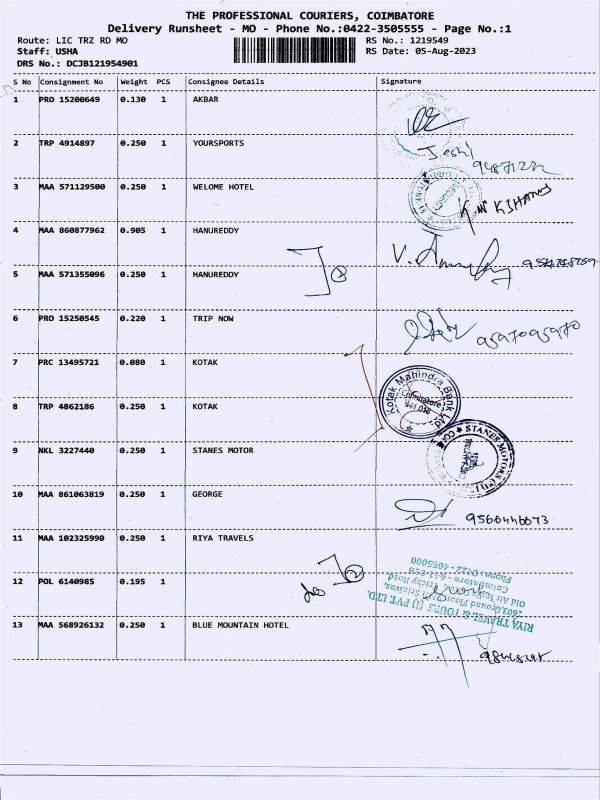 THE PROFESSIONAL COURIERS, COIMBATORE
Delivery Runsheet - MO - Phone No.:0422-3505555 - Page No.:1
Route: LIC TRZ RD MO RS No.: 1219549
Staff: USHA RS Date: 05-Aug-2023
DRS No.: DCJB121954901
S No Consignment No Weight PCS Consignee Details Signature
1 PRO 15200649 0.130 1 AKBAR
2 TRP 4914897 0.250 1 YOURSPORTS
3 MAA 571129500 0.250 1 WELOME HOTEL
4 MAA 860877962 0.905 1 HANUREDDY
5 MAA 571355096 0.250 1 HANUREDDY
6 PRO 15250545 0.220 1 TRIP NOW
9597095970
7 PRC 13495721 0.080 1 KOTAK
Kotak Mahindra Bank Ltd
Coimbatore
8 TRP 4862186 0.250 1 KOTAK
9 NKL 3227440 0.250 1 STANES MOTOR
STANES MOTORS
10 MAA 861063819 0.250 1 GEORGE
11 MAA 102325990 0.250 1 RIYA TRAVELS
12 POL 6140985 0.195 1
RIYA TRAVEL & TOURS (I) PVT. LTD.
Trichy Road
Phone: 0422 - 4055000
13 MAA 568926132 0.250 1 BLUE MOUNTAIN HOTEL